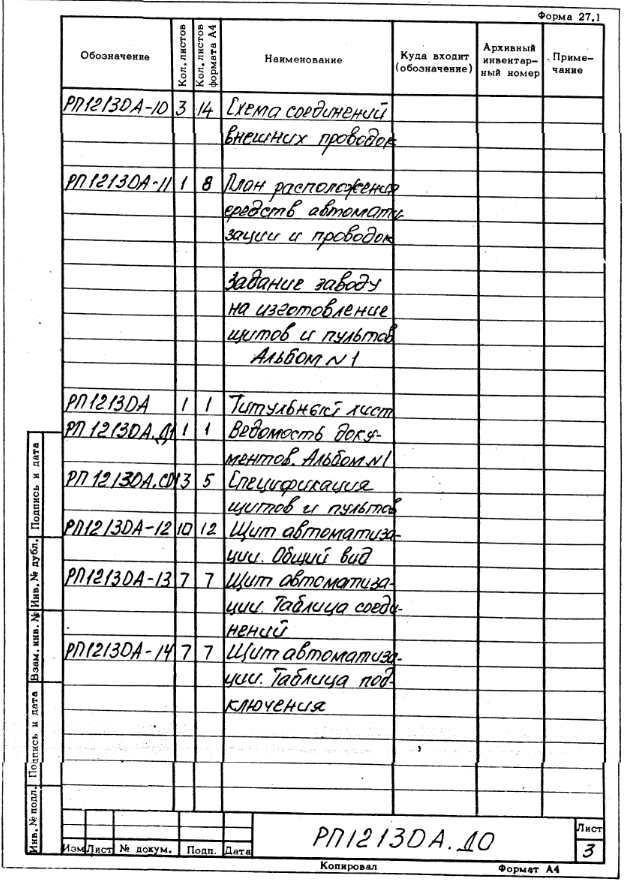 Форма 27.1
Обозначение Кол. листов Кол. листов формата А4 Наименование Куда входит (обозначение) Архивный инвентар- ный номер Приме- чание
РП1213ОА-10 3 14 Схема соединений
внешних проводок
РП1213ОА-11 1 8 План расположения
средств автомати-
зации и проводок
Задание заводу
на изготовление
щитов и пультов
Альбом N1
РП1213ОА 1 1 Титульный лист
РП 1213ОА.Д1 1 1 Ведомость доку-
ментов. Альбом N1
РП 1213ОА.СО1 3 5 Спецификация
щитов и пультов
РП1213ОА-12 10 12 Щит автоматиза-
ции. Общий вид
РП1213ОА-13 7 7 Щит автоматиза-
ции. Таблица соеди-
нений
РП1213ОА-14 7 7 Щит автоматиза-
ции. Таблица под-
ключения
Инв. № подл. Подпись и дата Взам. инв. № Инв. № дубл. Подпись и дата
РП1213ОА.ДО
Лист
3
Изм Лист № докум. Подп. Дата
Копировал Формат А4